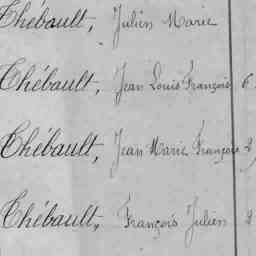 Thébault, Julien Marie
Thébault, Jean Louis François 6
Thébault, Jean Marie François 2
Thébault, François Julien 2